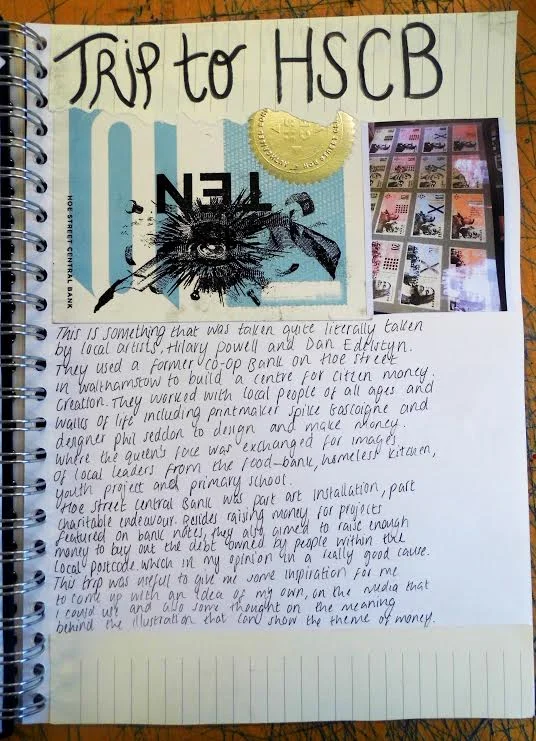 TRIP to HSCB
TEN
HOE STREET CENTRAL BANK
This is something that was taken quite literally taken
by local artists, Hilary Powell and Dan Edelstyn.
They used a former Co-Op Bank on Hoe Street
in Walthamstow to build a centre for citizen money.
Creation. They worked with local people of all ages and
walks of life including printmaker Spike Gascoigne and
designer Phil Seddon to design and make money.
Where the queen's face was exchanged for images
of local leaders from the food-bank, homeless kitchen,
youth project and primary school.
Hoe street central Bank was part art installation, part
charitable endeavour. Besides raising money for projects
featured on bank notes, they also aimed to raise enough
money to buy out the debt owned by people within the
local postcode. which in my opinion in a really good cause.
This trip was useful to give me some inspiration for me
to come up with an idea of my own, on the media that
I could use and also some thought on the meaning
behind the illustration that can show the theme of money.